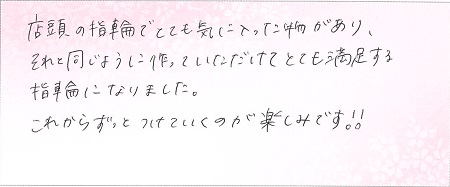 店頭の指輪でとても気に入った物があり、
それと同じように作っていただけてとても満足する
指輪になりました。
これからずっとつけていくのが楽しみです!!